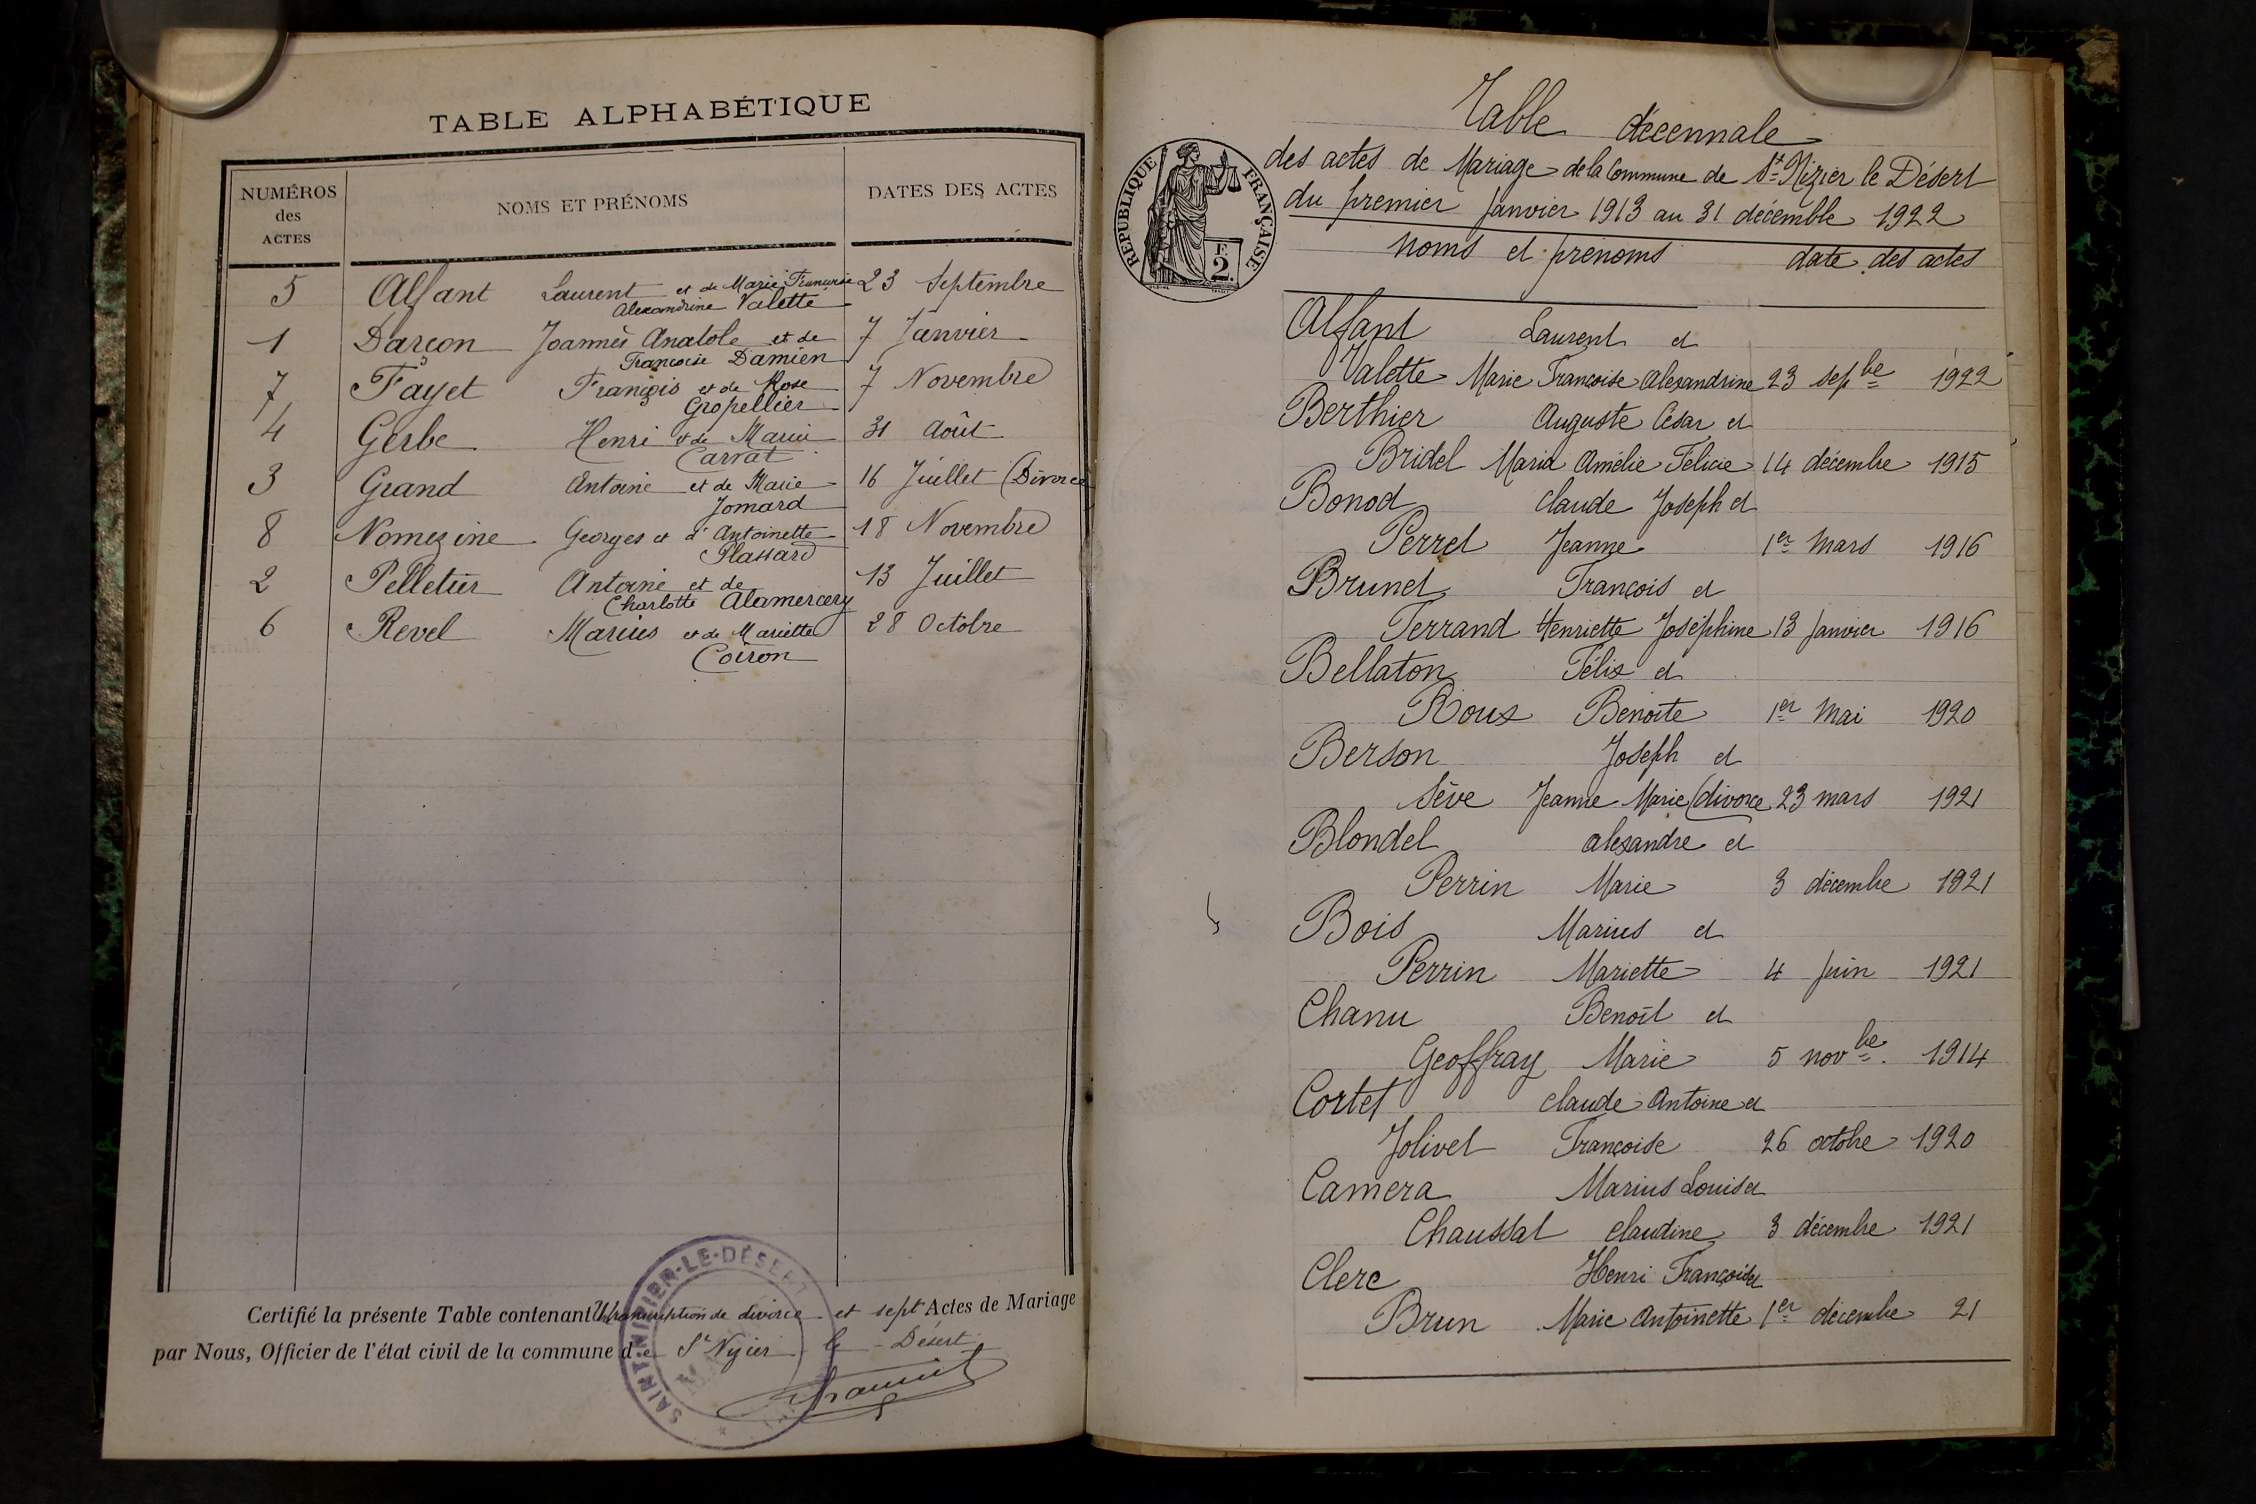 TABLE ALPHABÉTIQUE
NUMÉROS
des
ACTES
NOMS ET PRÉNOMS
DATES DES ACTES
5 Alfant Laurent et de Marie Françoise 23 Septembre
Alexandrine Valette
1 Darçon Joannès Anatole et de 7 Janvier
Françoise Damien
7 Fayet François et de Rose 7 Novembre
Gropellier
4 Gerbe Henri et de Maria 31 Août
Carrat
3 Grand Antoine et de Marie 16 Juillet (Divorce
Jomard
8 Nomezine Georges et d'Antoinette 18 Novembre
Plassard
2 Pelletier Antoine et de 13 Juillet
Charlotte Alamercery
6 Revel Marius et de Mariette 28 Octobre
Coiron
Certifié la présente Table contenant transcription de divorce et sept Actes de Mariage
par Nous, Officier de l'état civil de la commune de St Nizier le Désert
SAINT-NIZIER-LE-DÉSERT
Table décennale
des actes de Mariage de la Commune de St Nizier le Désert
du premier Janvier 1913 au 31 décembre 1922
RÉPUBLIQUE FRANÇAISE
F.
2.
noms et prénoms date des actes
Alfant Laurent et
Valette Marie Françoise Alexandrine 23 sepbe 1922
Berthier Auguste César et
Bridel Maria Amélie Félicie 14 décembre 1915
Bonod Claude Joseph et
Perret Jeanne 1er Mars 1916
Brunet François et
Ferrand Henriette Joséphine 13 Janvier 1916
Bellaton Félix et
Roux Benoite 1er Mai 1920
Berson Joseph et
Sève Jeanne Marie (divorce 23 mars 1921
Blondel alexandre et
Perrin Marie 3 décembre 1921
Bois Marius et
Perrin Mariette 4 Juin 1921
Chanu Benoît et
Geoffray Marie 5 novbe. 1914
Cortet Claude Antoine et
Jolivet Françoise 26 octobre 1920
Camera Marius Louis et
Chaussat Claudine 3 décembre 1921
Clerc Henri François et
Brun Marie Antoinette 1er décembre 21